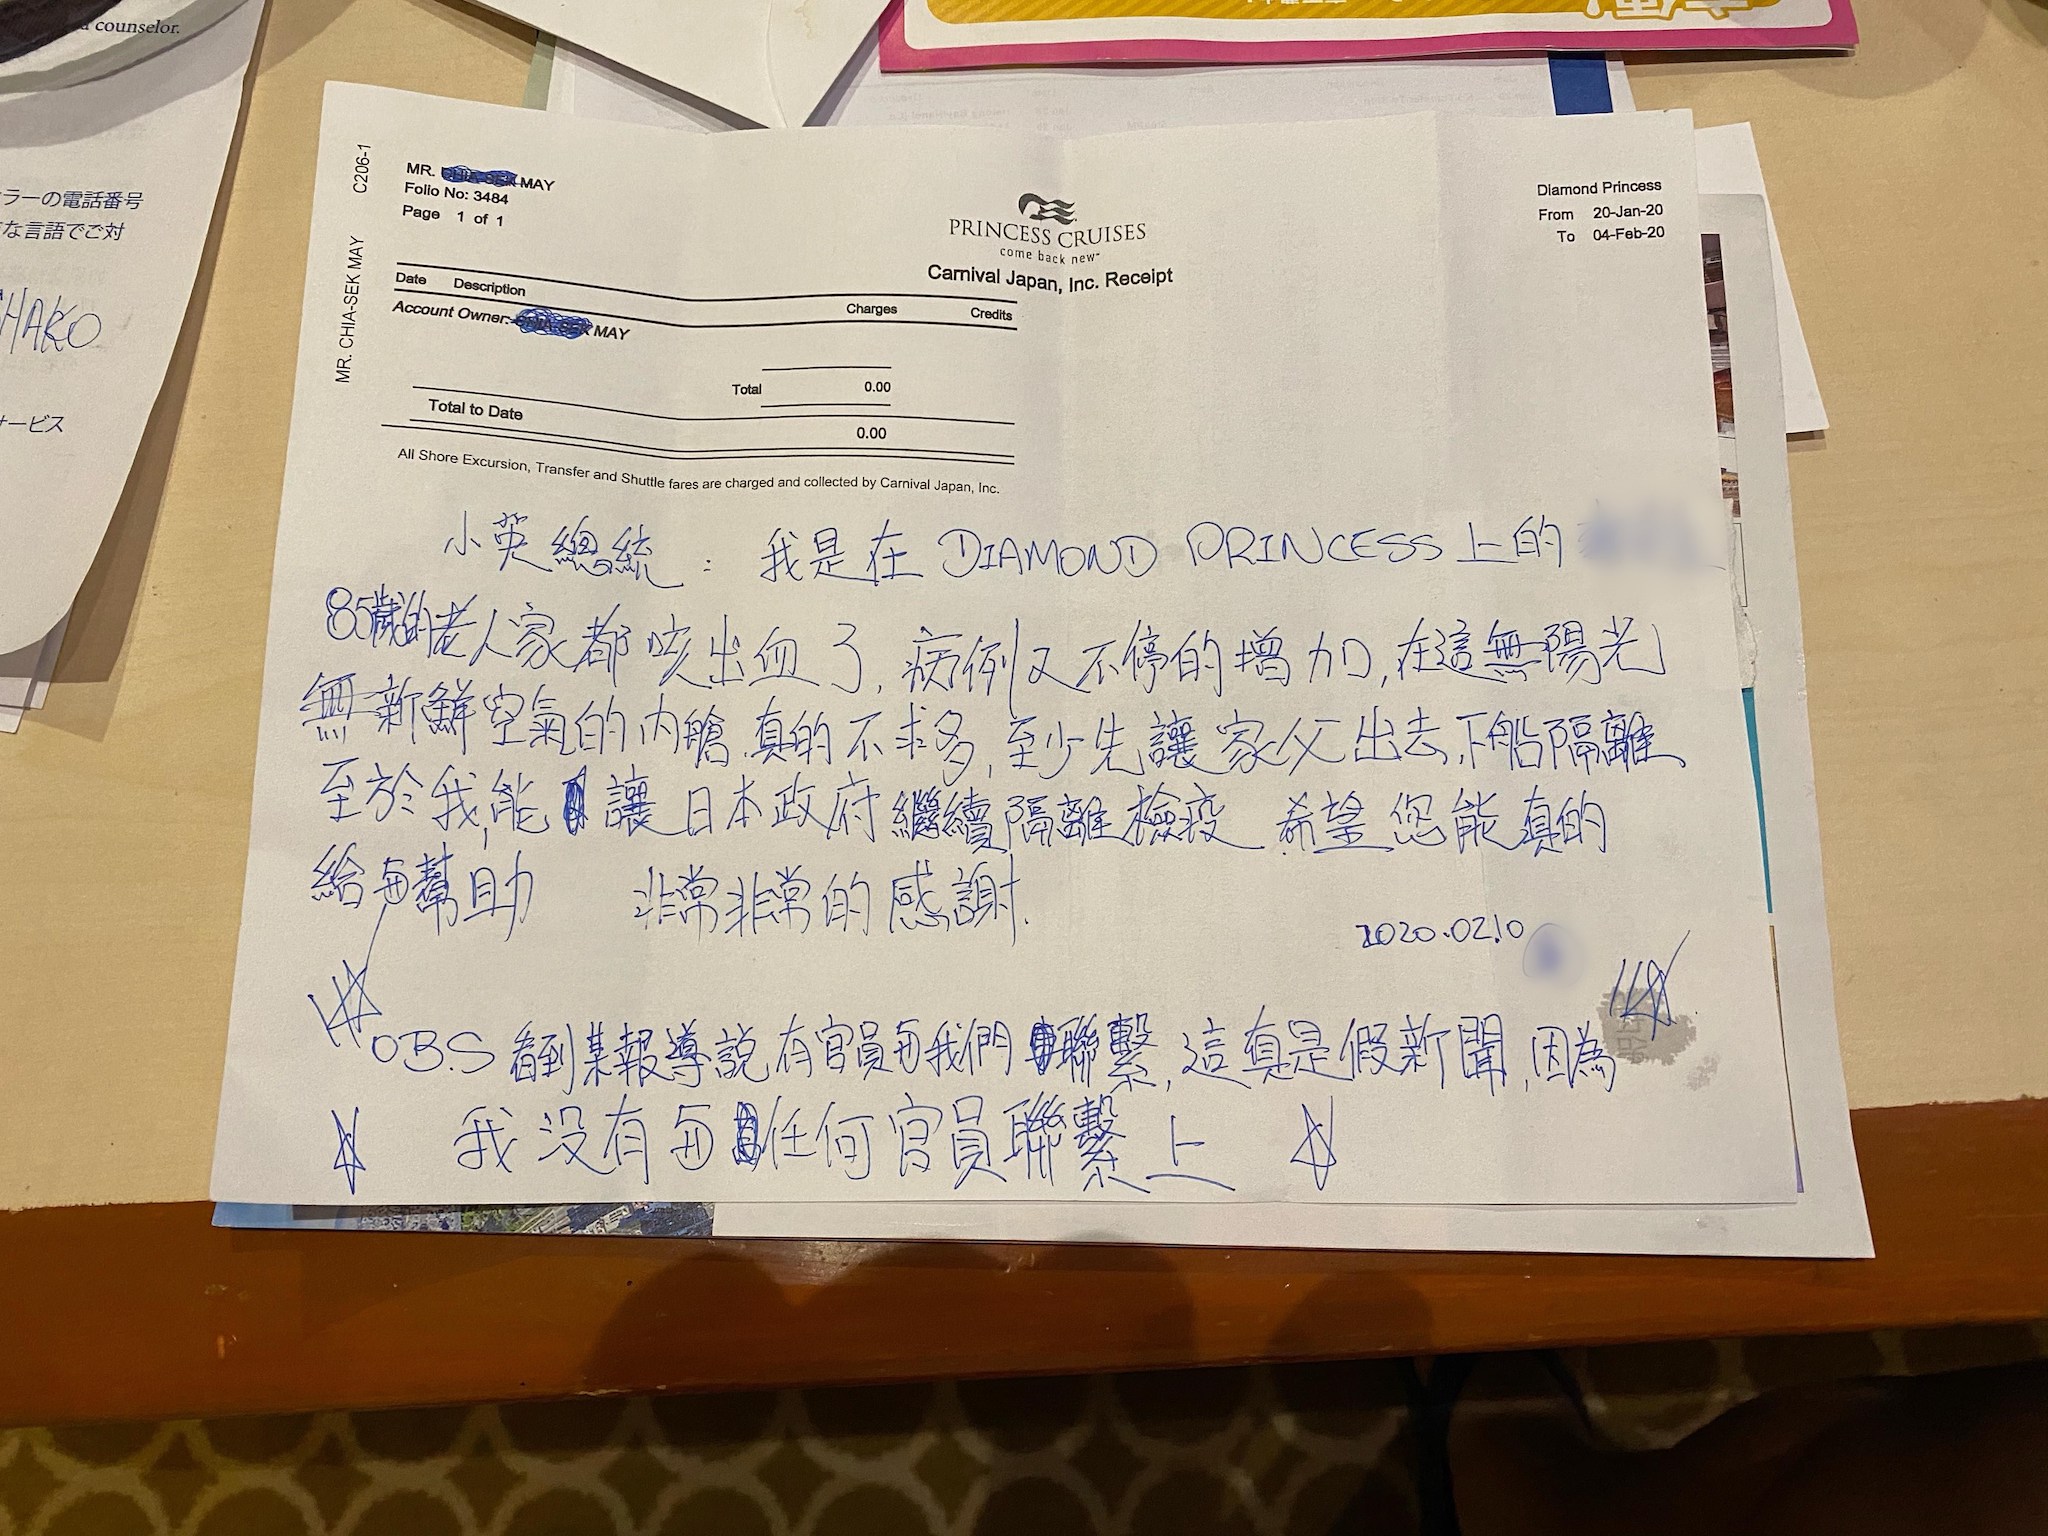 counselor.
ラーの電話番号
な言語でご対
HAKO
サービス
C206-1
MR. CHIA-SEK MAY
MR. CHIA-SEK MAY
Folio No: 3484
Page 1 of 1
PRINCESS CRUISES
come back new℠
Carnival Japan, Inc. Receipt
Diamond Princess
From 20-Jan-20
To 04-Feb-20
Date Description Charges Credits
Account Owner: CHIA-SEK MAY
Total 0.00
Total to Date 0.00
All Shore Excursion, Transfer and Shuttle fares are charged and collected by Carnival Japan, Inc.
小英總統: 我是在 DIAMOND PRINCESS 上的
85歲的老人家都咳出血了,病例又不停的增加,在這無陽光
無新鮮空氣的內艙.真的不求多,至少先讓家父出去,下船隔離
至於我,能讓日本政府繼續隔離檢疫.希望您能真的
給与幫助 非常非常的感謝.
2020.02.10
OB.S 看到某報導說有官員与我們聯繫,這真是假新聞,因為
我沒有与任何官員聯繫上